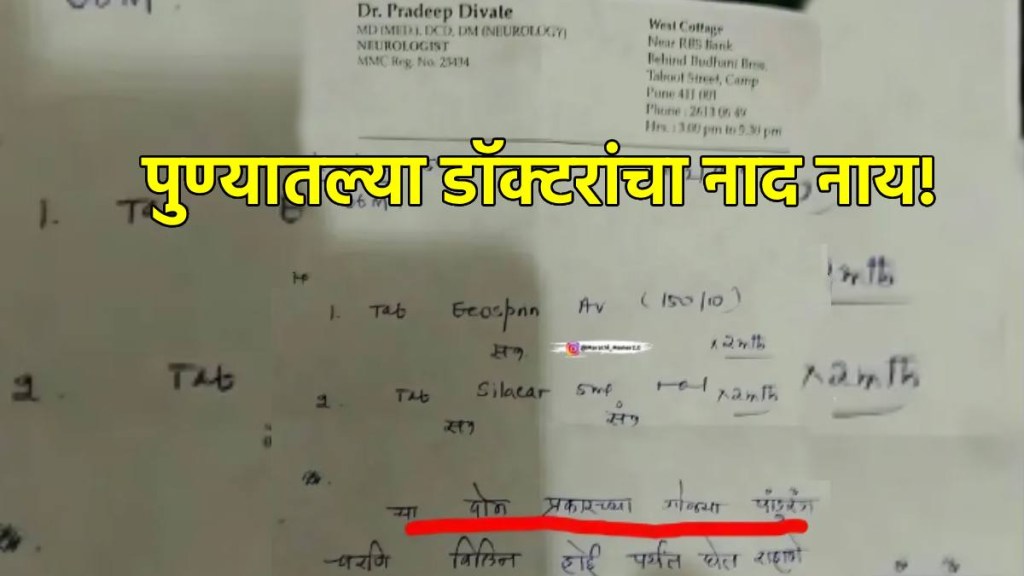 Dr. Pradeep Divate
MD (MED.), DCD, DM (NEUROLOGY)
NEUROLOGIST
MMC Reg. No. 25434
West Cottage
Near RBS Bank
Behind Budhani Bros.
Taboot Street, Camp
Pune 411 001
Phone : 2613 06 49
Hrs. : 3.00 pm to 5.30 pm
पुण्यातल्या डॉक्टरांचा नाद नाय!
1. Tab
1. Tab Ecosprin AV (150/10)
x 2 mth
2. Tab
2. Tab Silacar 5mg x 2 mth
x 2 mth
या दोन प्रकारच्या गोळ्या पांडुरंग
चरणि विलिन होई पर्यंत घेत राहाणे